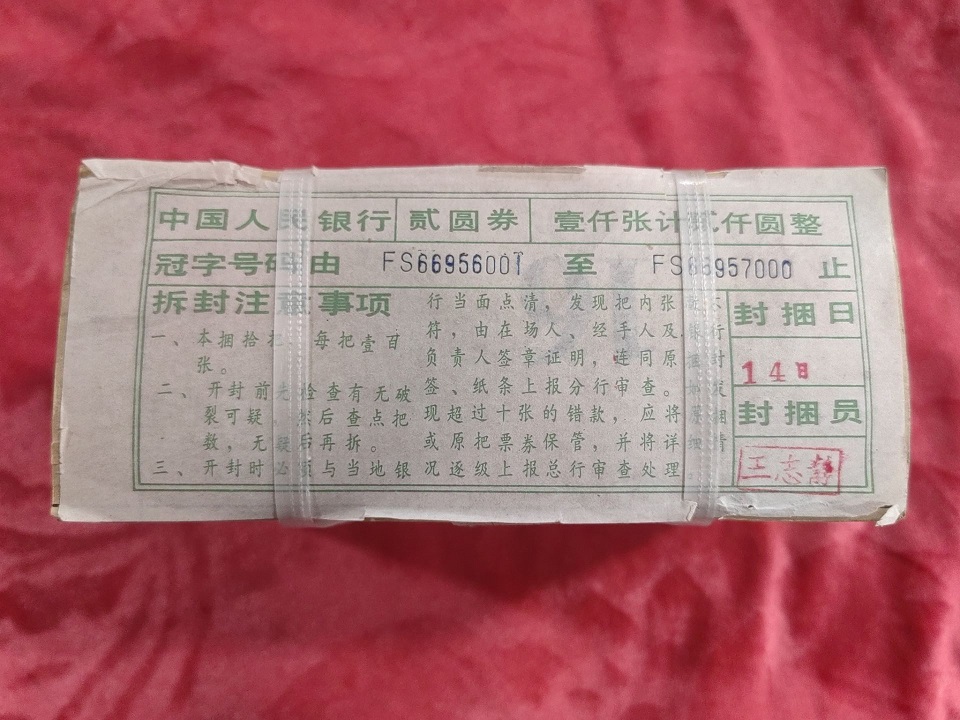 中国人民银行 贰圆券 壹仟张计贰仟圆整
冠字号码由 FS66956001 至 FS66957000 止
拆封注意事项
一、本捆拾把，每把壹百
张。
二、开封前先检查有无破
裂可疑，然后查点把
数，无疑后再拆。
三、开封时必须与当地银
行当面点清，发现把内张
符，由在场人、经手人及银行
负责人签章证明，连同原封
签、纸条上报分行审查。
现超过十张的错款，应将
或原把票券保管，并将详
况逐级上报总行审查处理
封捆日
14日
封捆员
王志静